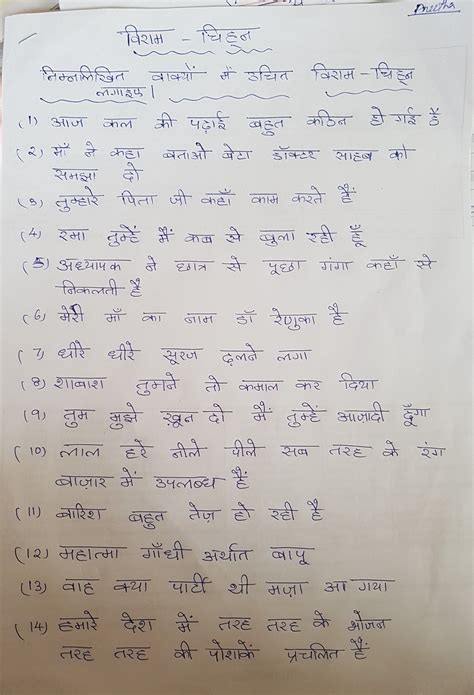 Preetha
विराम - चिह्न
निम्नलिखित वाक्यों में उचित विराम - चिह्न
लगाइए।
(1) आज कल की पढ़ाई बहुत कठिन हो गई है
(2) माँ ने कहा बताओ बेटा डॉक्टर साहब को
समझा दो
(3) तुम्हारे पिता जी कहाँ काम करते हैं
(4) रमा तुम्हें मैं कब से बुला रही हूँ
(5) अध्यापक ने छात्र से पूछा गंगा कहाँ से
निकलती है
(6) मेरी माँ का नाम डॉ रेणुका है
(7) धीरे धीरे सूरज ढ़लने लगा
(8) शाबाश तुमने तो कमाल कर दिया
(9) तुम मुझे खून दो मैं तुम्हें आज़ादी दूँगा
(10) लाल हरे नीले पीले सब तरह के रंग
बाज़ार में उपलब्ध हैं
(11) बारिश बहुत तेज़ हो रही है
(12) महात्मा गाँधी अर्थात बापू
(13) वाह क्या पार्टी थी मज़ा आ गया
(14) हमारे देश में तरह तरह के भोजन
तरह तरह की पोशाकें प्रचलित हैं